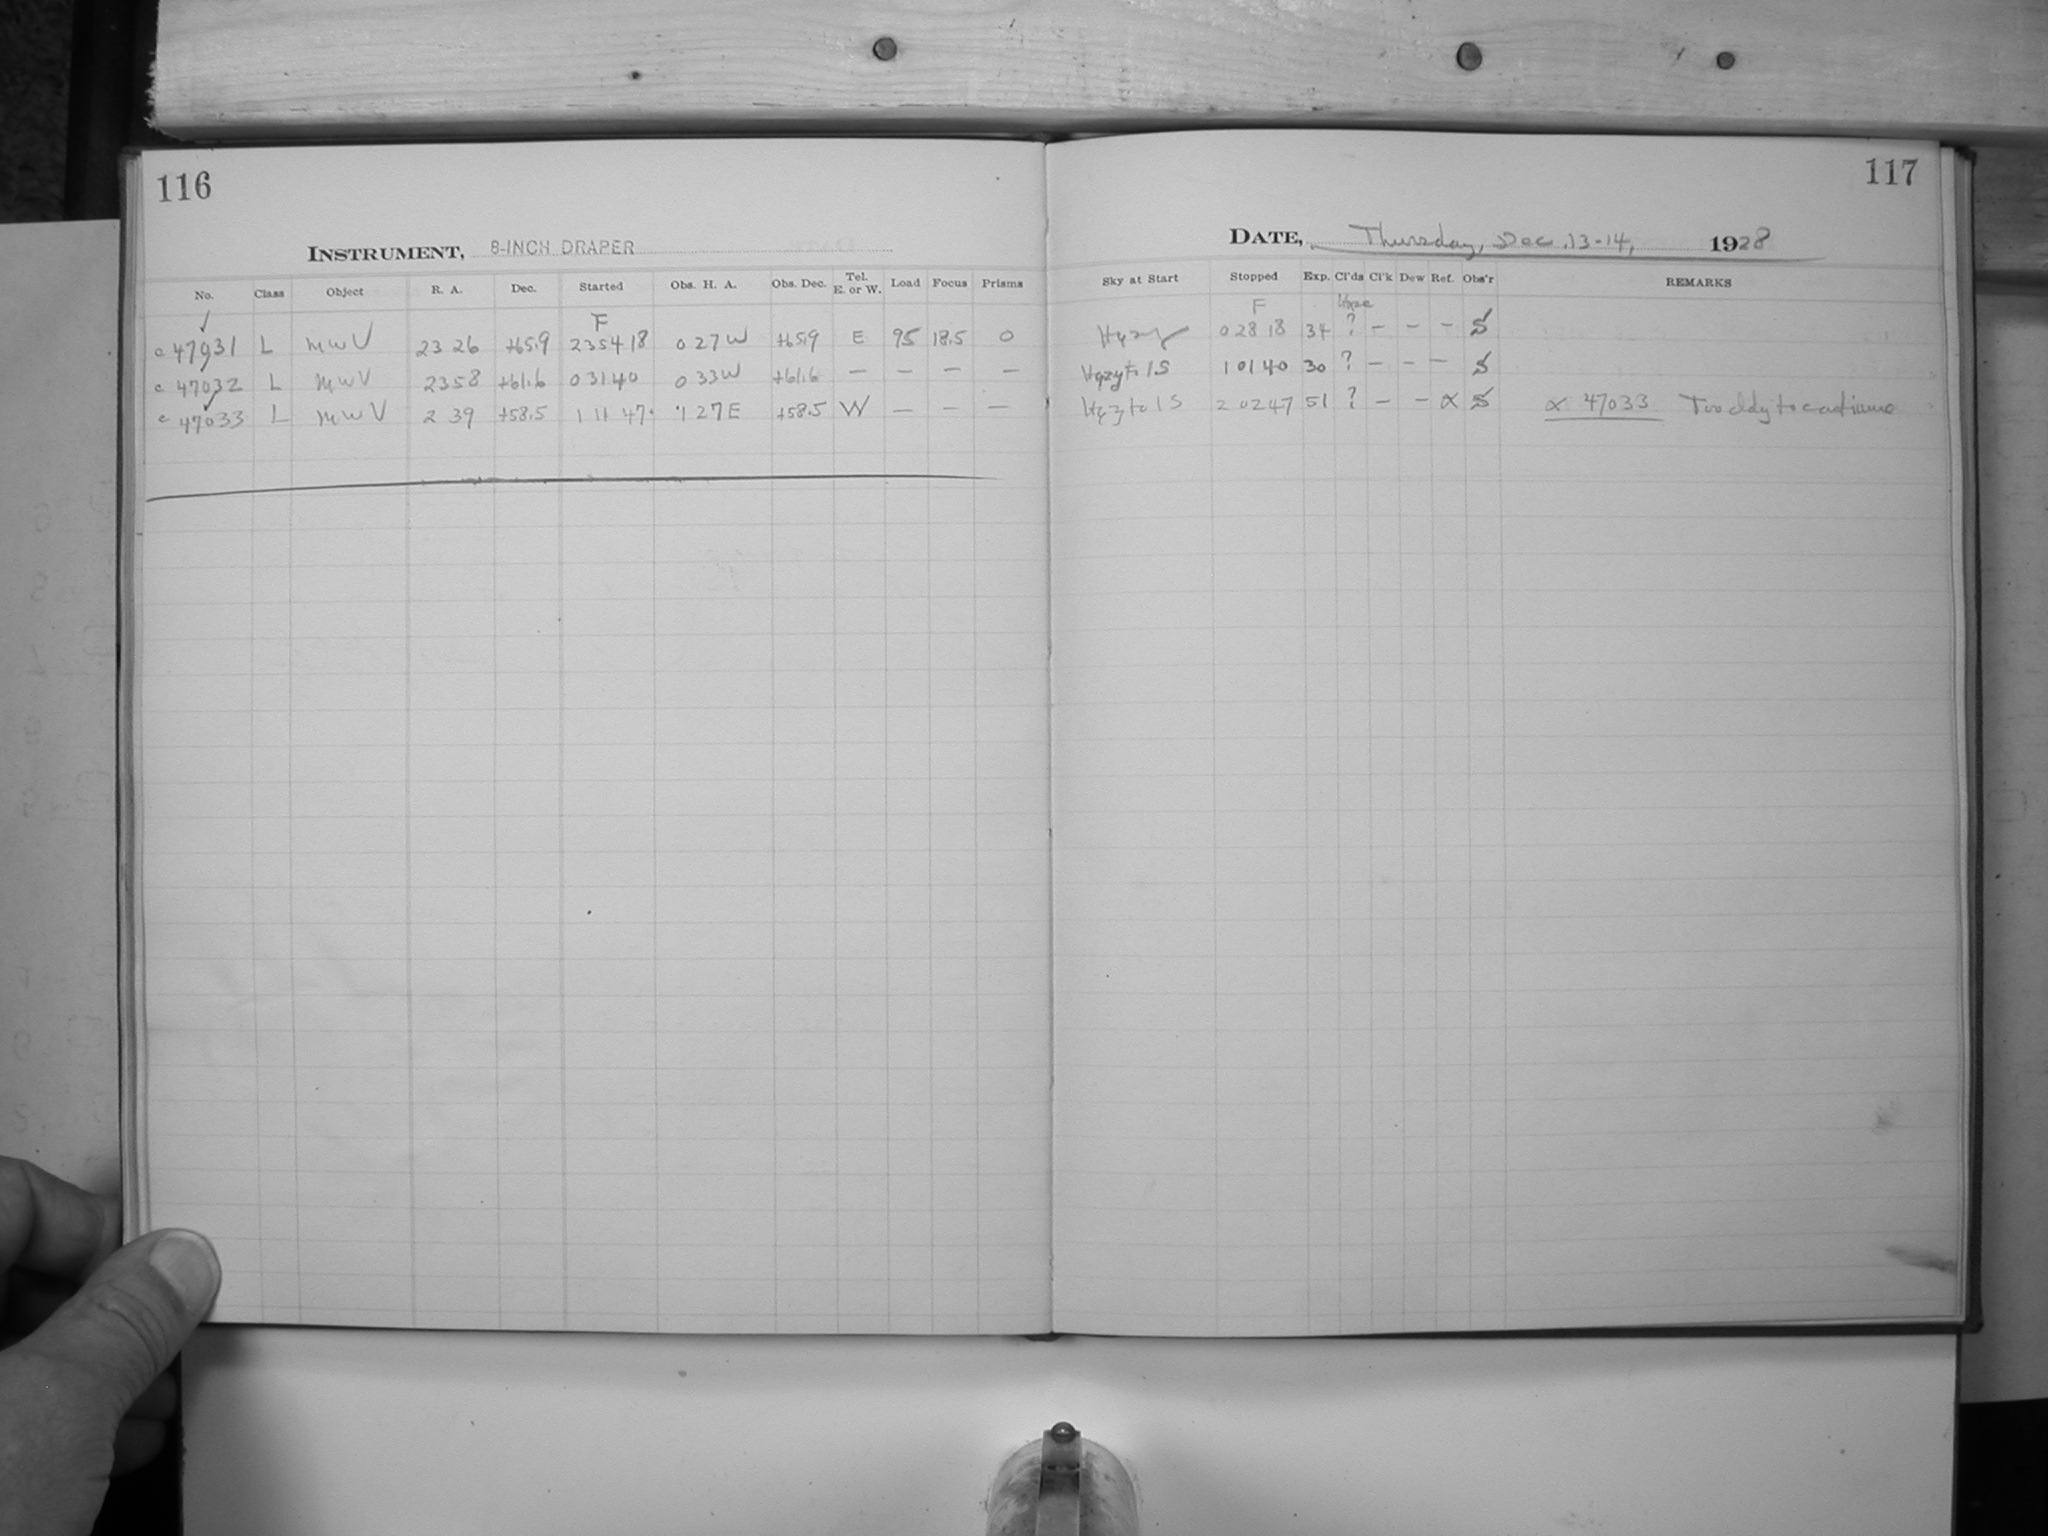 116
INSTRUMENT, 8-INCH DRAPER
No. Class Object R. A. Dec. Started Obs. H. A. Obs. Dec. Tel. E. or W. Load Focus Prisms
F
c 47031 L MWV 23 26 +65.9 23 54 18 0 27 W +65.9 E 95 18.5 0
c 47032 L MWV 23 58 +61.6 0 31 40 0 33 W +61.6 — — — —
c 47033 L MWV 2 39 +58.5 1 11 47 1 27 E +58.5 W — — —
117
DATE, Thursday, Dec. 13-14, 1928
Sky at Start Stopped Exp. Cl'ds Cl'k Dew Ref. Obs'r REMARKS
F Haze
Hazy 0 28 18 34 ? — — — S
Hazy to 1S 1 01 40 30 ? — — — S
Hazy to 1S 2 02 47 51 ? — — α S α 47033 Too cldy to continue